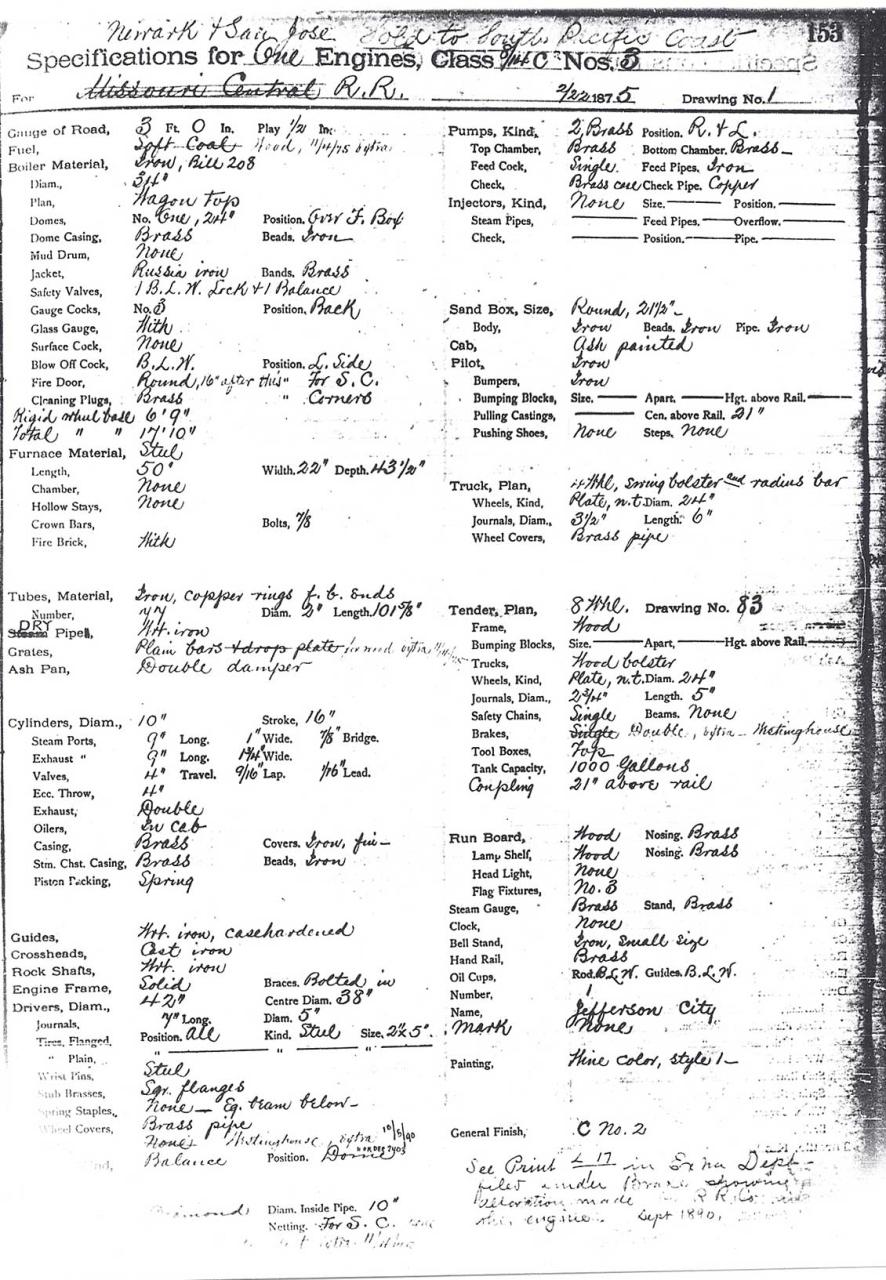 Newark & San Jose Sold to South Pacific Coast
153
Specifications for One Engines, Class 8/14 C Nos. 3
For Missouri Central R.R. 2/22 1875 Drawing No. 1
Gauge of Road, 3 Ft. 0 In. Play 1/2 In.
Fuel, Soft Coal Wood, 11/4/75 extra
Boiler Material, Iron, Bill 208
Diam., 34"
Plan, Wagon top
Domes, No. One, 24" Position. Over F. Box
Dome Casing, Brass Beads. Iron
Mud Drum, None
Jacket, Russia iron Bands. Brass
Safety Valves, 1 B.L.W. Lock & 1 Balance
Gauge Cocks, No. 3 Position. Back
Glass Gauge, With
Surface Cock, None
Blow Off Cock, B.L.W. Position. L. Side
Fire Door, Round, 16" after this " For S.C.
Cleaning Plugs, Brass " Corners
Rigid wheel base 6' 9"
Total " " 17' 10"
Furnace Material, Steel
Length, 50" Width. 22" Depth. 43 1/2"
Chamber, None
Hollow Stays, None
Crown Bars, Bolts, 7/8
Fire Brick, With
Tubes, Material, Iron, copper rings f.b. ends
Number, 77 Diam. 2" Length. 101 5/8"
DRY
Steam Pipe, Wrt. iron
Grates, Plain bars & drop plate
Ash Pan, Double damper
Cylinders, Diam., 10" Stroke, 16"
Steam Ports, 9" Long. 1" Wide. 7/8" Bridge.
Exhaust " 9" Long. 1 3/4" Wide.
Valves, 4" Travel. 9/16" Lap. 1/16" Lead.
Ecc. Throw, 4"
Exhaust, Double
Oilers, In cab
Casing, Brass Covers. Iron, fin-
Stm. Chst. Casing, Brass Beads, Iron
Piston Packing, Spring
Guides, Wrt. iron, casehardened
Crossheads, Cast iron
Rock Shafts, Wrt. iron
Engine Frame, Solid Braces. Bolted in
Drivers, Diam., 42" Centre Diam. 38"
Journals, 7" Long. Diam. 5"
Tires, Flanged, Position. All Kind. Steel Size.
" Plain, " " "
Wrist Pins, Steel
Stub Brasses, Sqr. flanges
Spring Staples, None - Eq. beam below-
Wheel Covers, Brass pipe
None Westinghouse, extra 10/5/90
Balance Position. Dome
Diamond Diam. Inside Pipe. 10"
Netting. For S.C.
Pumps, Kind, 2, Brass Position. R. & L.
Top Chamber, Brass Bottom Chamber. Brass
Feed Cock, Single Feed Pipes. Iron
Check, Brass case Check Pipe. Copper
Injectors, Kind, None Size. Position.
Steam Pipes, Feed Pipes. Overflow.
Check, Position. Pipe.
Sand Box, Size, Round, 21 1/2"
Body, Iron Beads. Iron Pipe. Iron
Cab, Ash painted
Pilot, Iron
Bumpers, Iron
Bumping Blocks, Size. Apart. Hgt. above Rail.
Pulling Castings, Cen. above Rail. 21"
Pushing Shoes, None Steps. None
Truck, Plan, 4 Whl, swing bolster and radius bar
Wheels, Kind, Plate, n.t. Diam. 24"
Journals, Diam., 3 1/2" Length. 6"
Wheel Covers, Brass pipe
Tender, Plan, 8 Whl. Drawing No. 83
Frame, Wood
Bumping Blocks, Size. Apart, Hgt. above Rail.
Trucks, Wood bolster
Wheels, Kind, Plate, n.t. Diam. 24"
Journals, Diam., 2 3/4" Length. 5"
Safety Chains, Single Beams. None
Brakes, Single Double, extra - Westinghouse
Tool Boxes, Top
Tank Capacity, 1000 Gallons
Coupling 21" above rail
Run Board, Wood Nosing. Brass
Lamp Shelf, Wood Nosing. Brass
Head Light, None
Flag Fixtures, No. 3
Steam Gauge, Brass Stand, Brass
Clock, None
Bell Stand, Iron, Small size
Hand Rail, Brass
Oil Cups, Rod. B.L.W. Guides. B.L.W.
Number, 1
Name, Jefferson City
Mark None
Painting, Wine color, style 1
General Finish, C No. 2
See Print L 17 in Extra Dept
filed under Brake showing
alteration made R R Co.
the engine. Sept 1890.